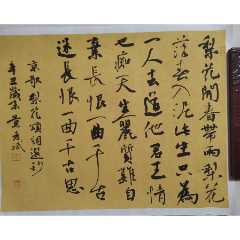 梨花開春帶雨梨花
落春入泥此生只為
一人去道他君王情
也痴天生麗質難自
棄長恨一曲千古
迷長恨一曲千古思
京歌梨花頌詞選抄
辛丑歲末黃